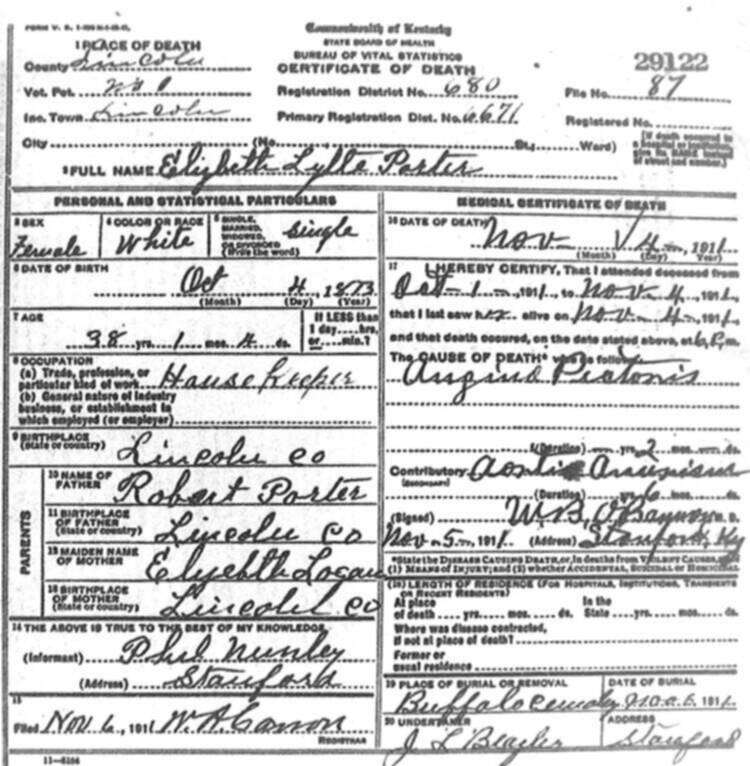 Commonwealth of Kentucky
STATE BOARD OF HEALTH
BUREAU OF VITAL STATISTICS
CERTIFICATE OF DEATH
29122
1 PLACE OF DEATH
County Lincoln
Vot. Pct. No 1
Inc. Town Lincoln
City (No. St., Ward)
Registration District No. 680
Primary Registration Dist. No. 6671
File No. 87
Registered No.
(If death occurred in a hospital or institution, give its NAME instead of street and number.)
2 FULL NAME Elizbeth Lytte Porter
PERSONAL AND STATISTICAL PARTICULARS
3 SEX
Female
4 COLOR OR RACE
White
5 SINGLE, MARRIED, WIDOWED, OR DIVORCED (Write the word)
Single
6 DATE OF BIRTH
Oct 4 1873
(Month) (Day) (Year)
7 AGE
38 yrs. 1 mos. 4 ds.
If LESS than 1 day ... hrs. or ... min.?
8 OCCUPATION
(a) Trade, profession, or
particular kind of work House Keeper
(b) General nature of industry
business, or establishment in
which employed (or employer)
9 BIRTHPLACE
(State or country) Lincoln Co
PARENTS
10 NAME OF FATHER Robert Porter
11 BIRTHPLACE OF FATHER (State or country) Lincoln Co
12 MAIDEN NAME OF MOTHER Logan
13 BIRTHPLACE OF MOTHER (State or country) Lincoln Co
14 THE ABOVE IS TRUE TO THE BEST OF MY KNOWLEDGE
(Informant) Phil Nunley
(Address) Stanford
15
Filed Nov 6, 1911
REGISTRAR
MEDICAL CERTIFICATE OF DEATH
16 DATE OF DEATH
Nov 4, 1911
(Month) (Day) (Year)
17 I HEREBY CERTIFY, That I attended deceased from
Oct 1, 1911, to Nov 4, 1911,
that I last saw her alive on Nov 4, 1911,
and that death occured, on the date stated above, at 6 P.m.
The CAUSE OF DEATH* was as follows:
Angina Pectoris
(Duration) yrs. 2 mos. ds.
Contributory Aortic
(SECONDARY)
(Duration) yrs. 6 mos. ds.
(Signed) W. B. M. D.
Nov 5, 1911 (Address) Stanford, Ky
*State the DISEASE CAUSING DEATH, or, in deaths from VIOLENT CAUSES, state
(1) MEANS OF INJURY; and (2) whether ACCIDENTAL, SUICIDAL or HOMICIDAL
(18) LENGTH OF RESIDENCE (FOR HOSPITALS, INSTITUTIONS, TRANSIENTS OR RECENT RESIDENTS)
At place of death yrs. mos. ds. In the State yrs. mos. ds.
Where was disease contracted,
If not at place of death?
Former or
usual residence
19 PLACE OF BURIAL OR REMOVAL
Buffalo
DATE OF BURIAL
6, 1911
20 UNDERTAKER
J L
ADDRESS
Stanford
11-6184